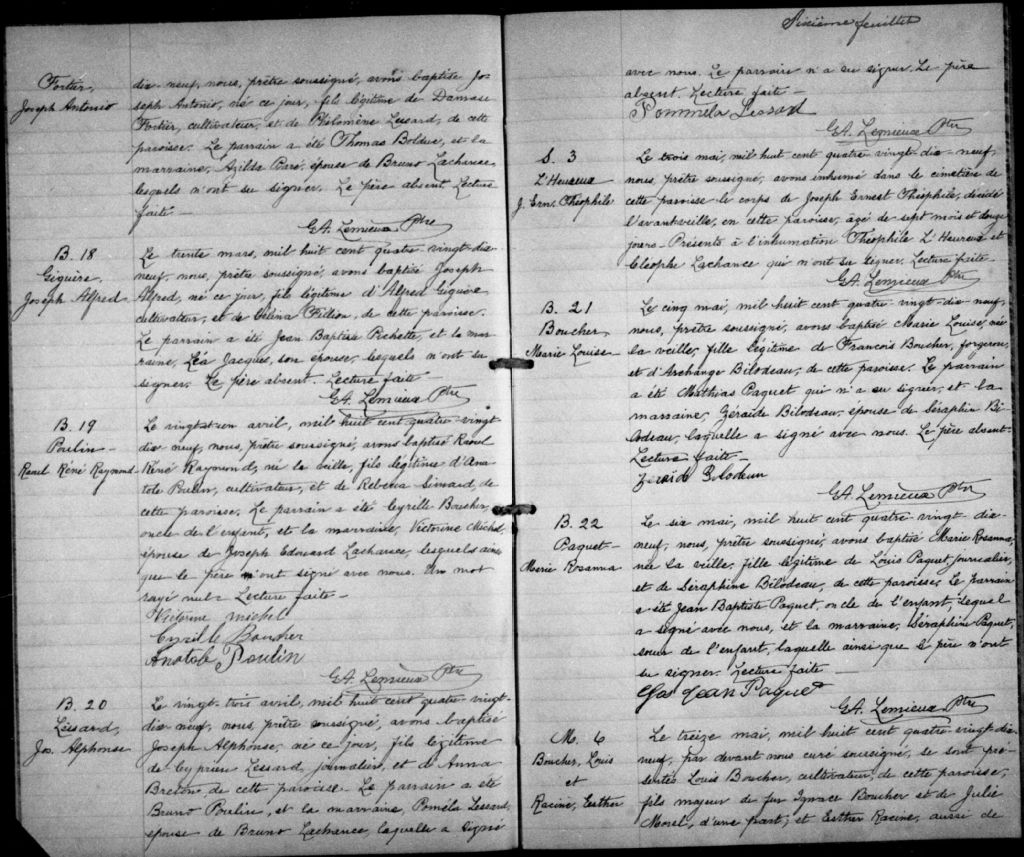 Fortier,
Joseph Antonio
dix neuf, nous, prêtre soussigné, avons baptisé Jo-
seph Antonio, né ce jour, fils légitime de Damase
Fortier, cultivateur, et de Philomène Lessard, de cette
paroisse. Le parrain a été Thomas Bolduc, et la
marraine, Azilda Paré, épouse de Bruno Lachance,
lesquels n'ont su signer. Le père absent. Lecture
faite —
G.A. Lemieux Ptre
B. 18
Giguère,
Joseph Alfred
Le trente mars, mil huit cent quatre-vingt-dix
neuf, nous, prêtre soussigné, avons baptisé Joseph
Alfred, né ce jour, fils légitime d'Alfred Giguère
cultivateur, et de Fillion, de cette paroisse.
Le parrain a été Jean Baptiste Pichette, et la mar-
raine, Léa Jacques, son épouse, lesquels n'ont su
signer. Le père absent. Lecture faite —
G.A. Lemieux Ptre
B. 19
Poulin —
Raoul Réné Raymond
Le vingt-et-un avril, mil huit cent quatre-vingt
dix neuf, nous, prêtre soussigné, avons baptisé Raoul
Réné Raymond, né la veille, fils légitime d'Ana-
tole Poulin, cultivateur, et de Rebecca Simard, de
cette paroisse. Le parrain a été Cyrille Boucher,
oncle de l'enfant, et la marraine, Victorine Michel,
épouse de Joseph Edouard Lachance, lesquels ainsi
que le père n'ont signé avec nous. Un mot
rayé nul = Lecture faite —
Victorine Michel
Cyrille Boucher
Anatole Poulin
G.A. Lemieux Ptre
B. 20
Lessard,
Jos. Alphonse
Le vingt-trois avril, mil huit cent quatre-vingt-
dix neuf, nous, prêtre soussigné, avons baptisé
Joseph Alphonse, né ce jour, fils légitime
de Cyprien Lessard, journalier, et d'Anna
Breton, de cette paroisse. Le parrain a été
Bruno Poulin, et la marraine, Poméla Lessard,
épouse de Bruno Lachance, laquelle a signé
Sixième feuillet
avec nous. Le parrain n'a su signer. Le père
absent. Lecture faite —
Pommela Lessard
G.A. Lemieux Ptre
S. 3
L'Heureux
J. Ern. Théophile
Le trois mai, mil huit cent quatre vingt-dix-neuf,
nous, prêtre soussigné, avons inhumé dans le cimetière de
cette paroisse le corps de Joseph Ernest Théophile, décédé
l'avant-veille, en cette paroisse, âgé de sept mois et douze
jours. Présents à l'inhumation Théophile L'Heureux et
Cléophe Lachance qui n'ont su signer. Lecture faite —
G.A. Lemieux Ptre
B. 21
Boucher
Marie Louise
Le cinq mai, mil huit cent quatre-vingt-dix-neuf,
nous, prêtre soussigné, avons baptisé Marie Louise, née
la veille, fille légitime de François Boucher, forgeron,
et d'Archange Bilodeau, de cette paroisse. Le parrain
a été Mathias Paquet qui n'a su signer, et la
marraine, Zéraide Bilodeau, épouse de Séraphin Bi-
lodeau, laquelle a signé avec nous. Le père absent —
Lecture faite —
Zéraide Bilodeau
G.A. Lemieux Ptre
B. 22
Paquet —
Marie Rosanna
Le six mai, mil huit cent quatre-vingt-dix-
neuf, nous, prêtre soussigné, avons baptisé Marie Rosanna,
née la veille, fille légitime de Louis Paquet, journalier,
et de Séraphine Bilodeau, de cette paroisse. Le parrain
a été Jean Baptiste Paquet, oncle de l'enfant, lequel
a signé avec nous, et la marraine, Séraphine Paquet,
sœur de l'enfant, laquelle ainsi que le père n'ont
su signer. Lecture faite —
Jean Paquet
G.A. Lemieux Ptre
M. 6
Boucher, Louis
et
Racine, Esther
Le treize mai, mil huit cent quatre vingt-dix
neuf, par devant nous curé soussigné, se sont pré-
sentés Louis Boucher, cultivateur, de cette paroisse,
fils majeur de feu Ignace Boucher et de Julie
Morel, d'une part; et Esther Racine, aussi de